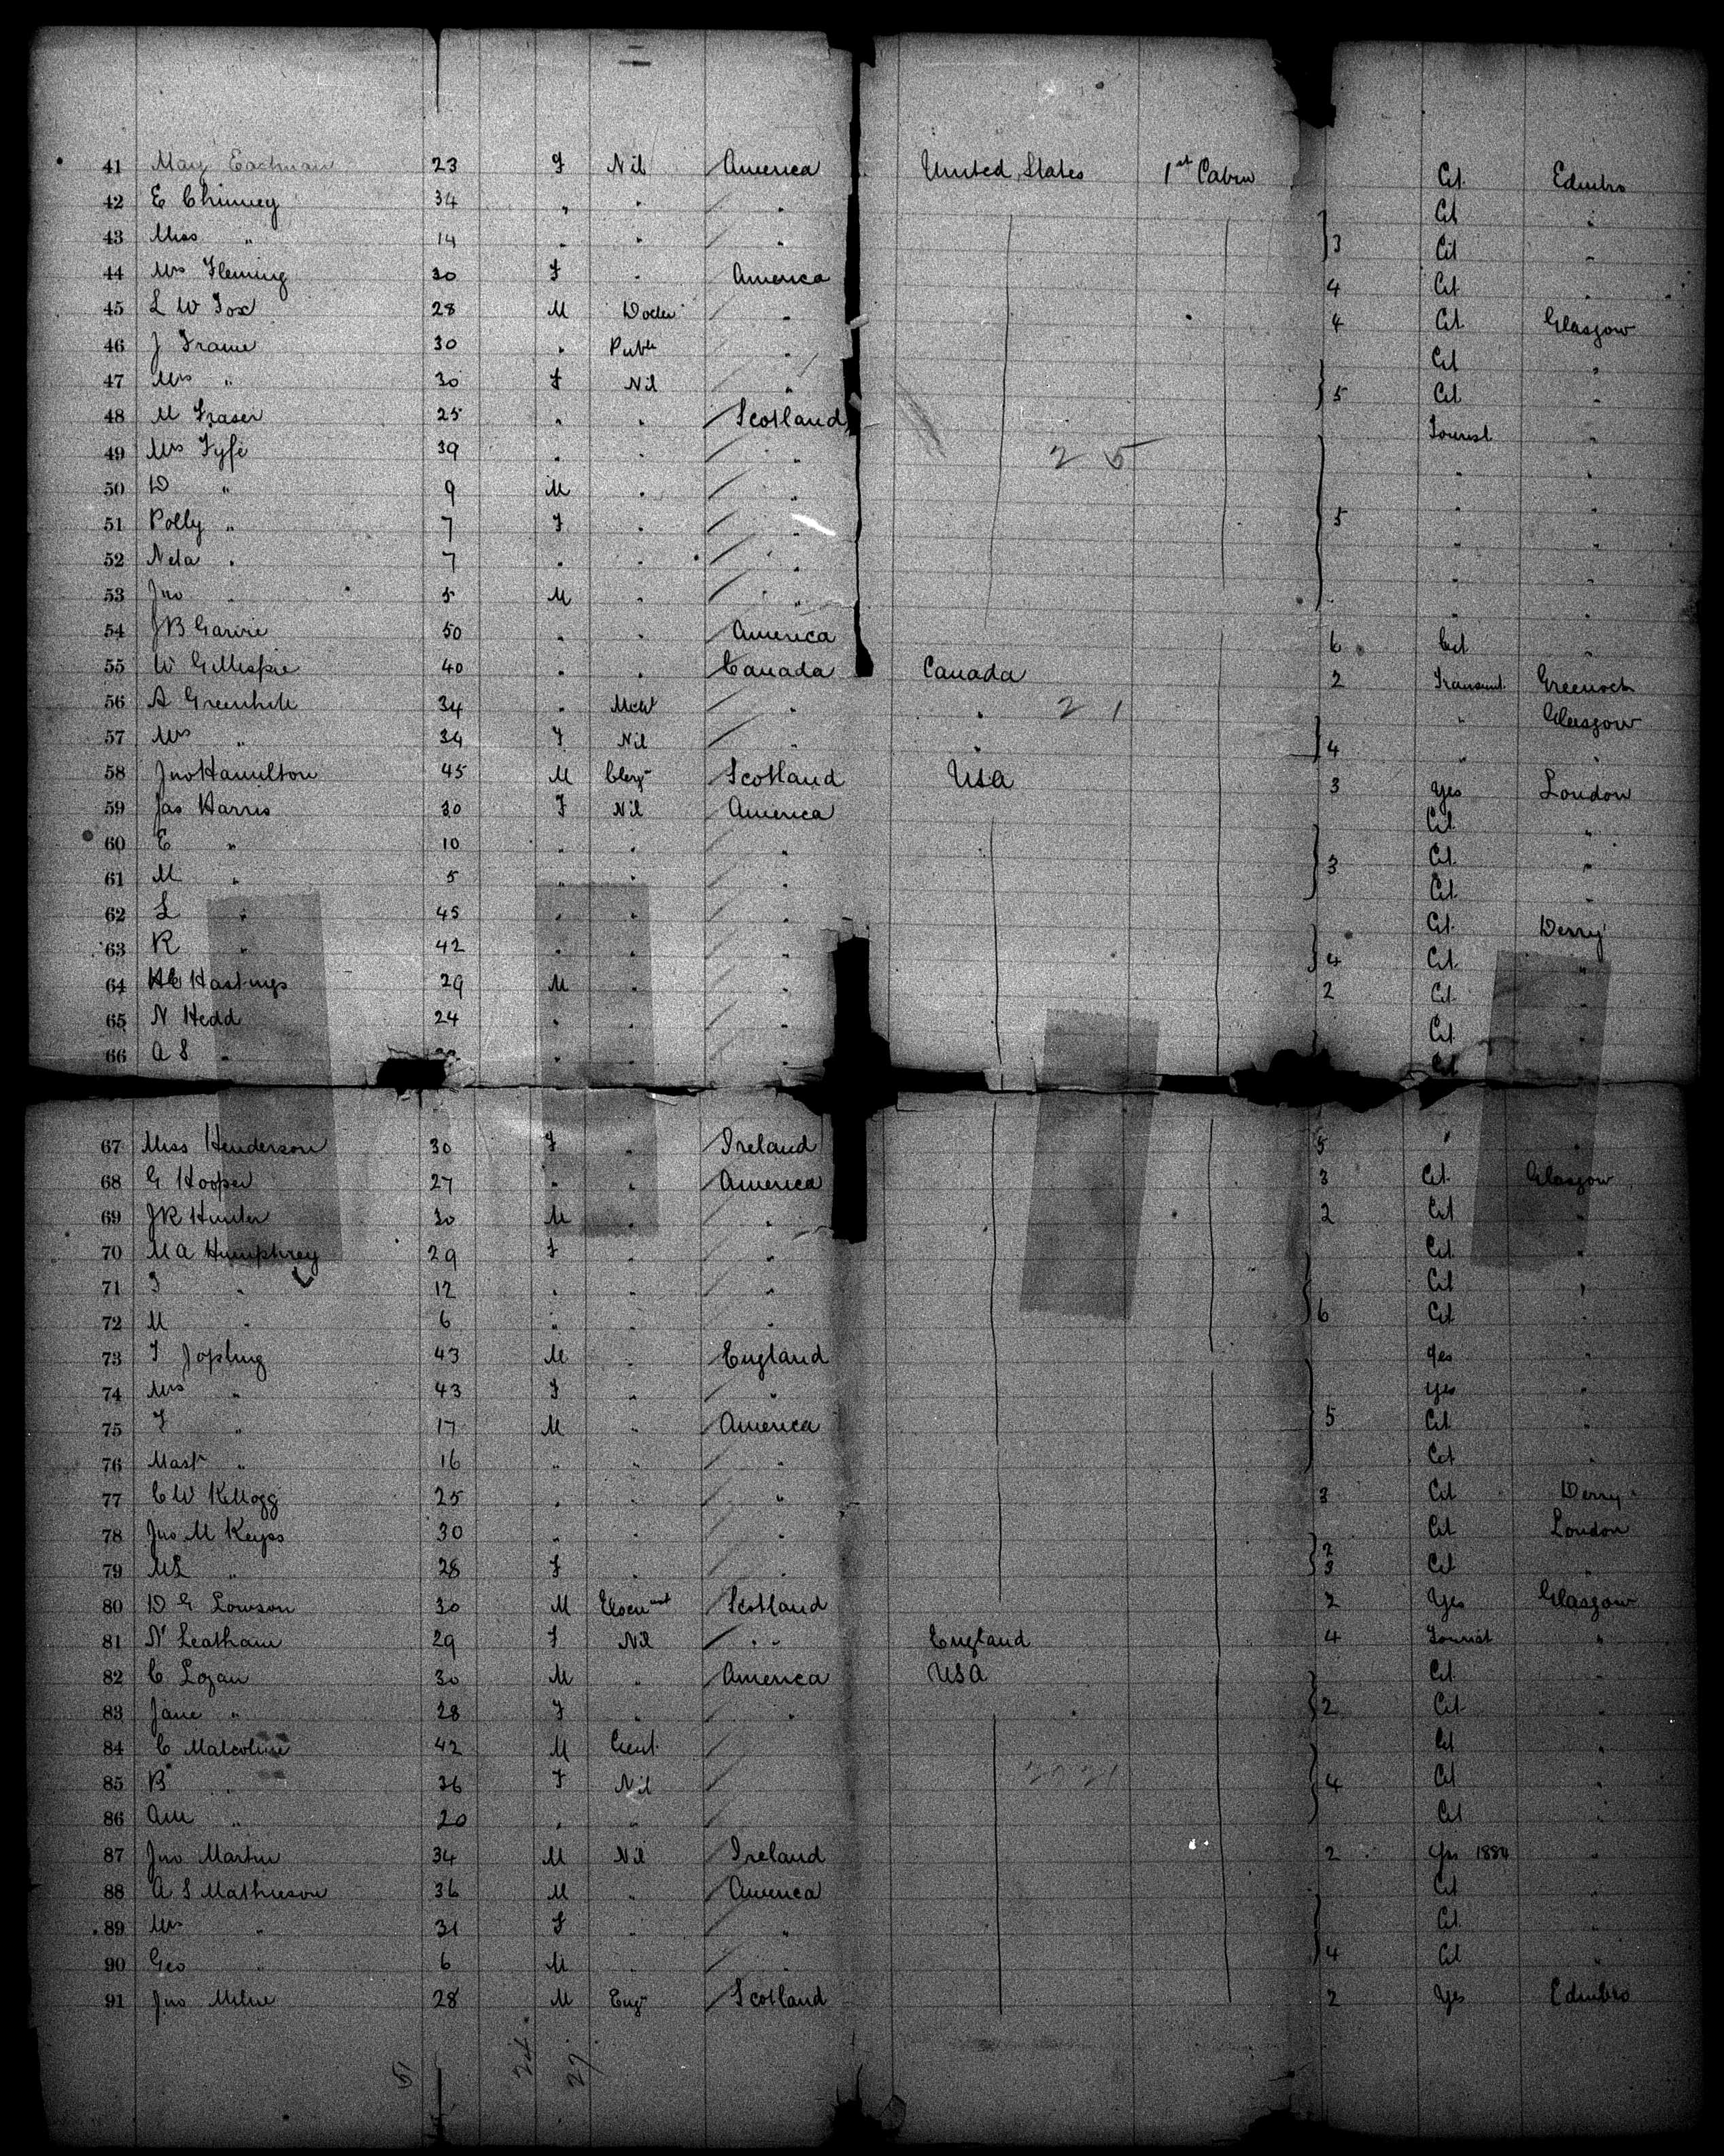 41 May Eachman 23 F Nil America United States 1st Cabin Cit Edinbro
42 E Chinney 34 " " " Cit "
43 Miss " 14 " " " } 3 Cit "
44 Mrs Fleming 30 F " America 4 Cit "
45 L W Fox 28 M " 4 Cit Glasgow
46 J Frame 30 " Publr " Cit "
47 Mrs " 30 F Nil " } 5 Cit "
48 M Fraser 25 " " Scotland Tourist "
49 Mrs Fyfe 39 " " " 25 " "
50 D " 9 M " " " "
51 Polly " 7 F " " } 5 " "
52 Neta " 7 " " " " "
53 Jno " 5 M " " " "
54 J B Garvie 50 " " America 6 Cit "
55 W Gillespie 40 " " Canada Canada 2 Transient Greenock
56 A Greenhill 34 " Mcht " " 21 " Glasgow
57 Mrs " 34 F Nil " " } 4 " "
58 Jno Hamilton 45 M Clergn Scotland USA 3 Yes London
59 Jas Harris 30 F Nil America Cit "
60 E " 10 " " " } 3 Cit "
61 M " 5 " " " Cit "
62 L " 45 " " " Cit Derry
63 R " 42 " " " } 4 Cit "
64 H C Hastings 29 M " " 2 Cit "
65 N Hedd 24 " " " Cit "
66 A S " " " " Cit "
67 Miss Henderson 30 F " Ireland 5 " "
68 G Hooper 27 " " America 3 Cit Glasgow
69 J R Hunter 30 M " " 2 Cit "
70 M A Humphrey 29 F " " Cit "
71 J " 12 " " " Cit "
72 M " 6 " " " } 6 Cit "
73 T Jopling 43 M " England Yes "
74 Mrs " 43 F " " Yes "
75 F " 17 M " America } 5 Cit "
76 Mastr " 16 " " " Cit "
77 C W Kellogg 25 " " " 3 Cit Derry
78 Jno M Keyes 30 " " " Cit London
79 M L " 28 F " " } 3 Cit "
80 D G Lowson 30 M Scotland 2 Yes Glasgow
81 N Leatham 29 F Nil " England 4 Tourist "
82 C Logan 30 M " America USA Cit "
83 Jane " 28 F " " } 2 Cit "
84 C Malcolm 42 M Gent. Cit "
85 B " 36 F Nil } 4 Cit "
86 Am " 20 " " Cit "
87 Jno Martin 34 M Nil Ireland 2 Yes 1884 "
88 A S Mathieson 36 M " America Cit "
89 Mrs " 31 F " " Cit "
90 Geo " 6 M " } 4 Cit "
91 Jno Milne 28 M Engr Scotland 2 Yes Edinbro
51 24 27